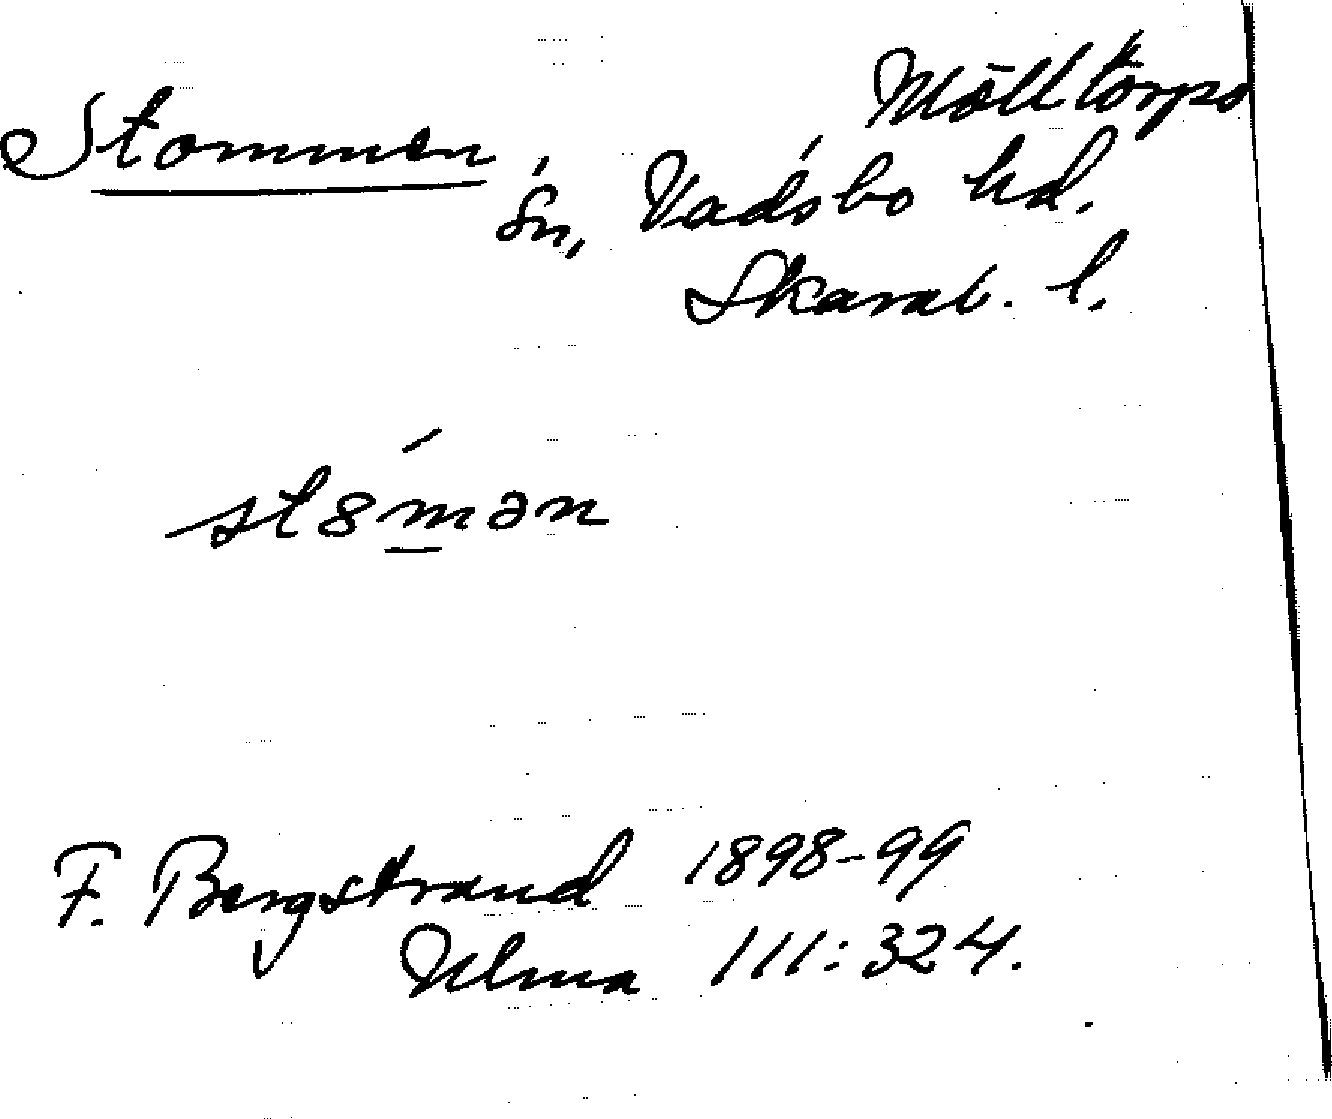 Stommen
Mölltorps
sn, Vadsbo hd.
Skarab. l.
st8mən
F. Bergstrand 1898-99
Ulma 111:324.